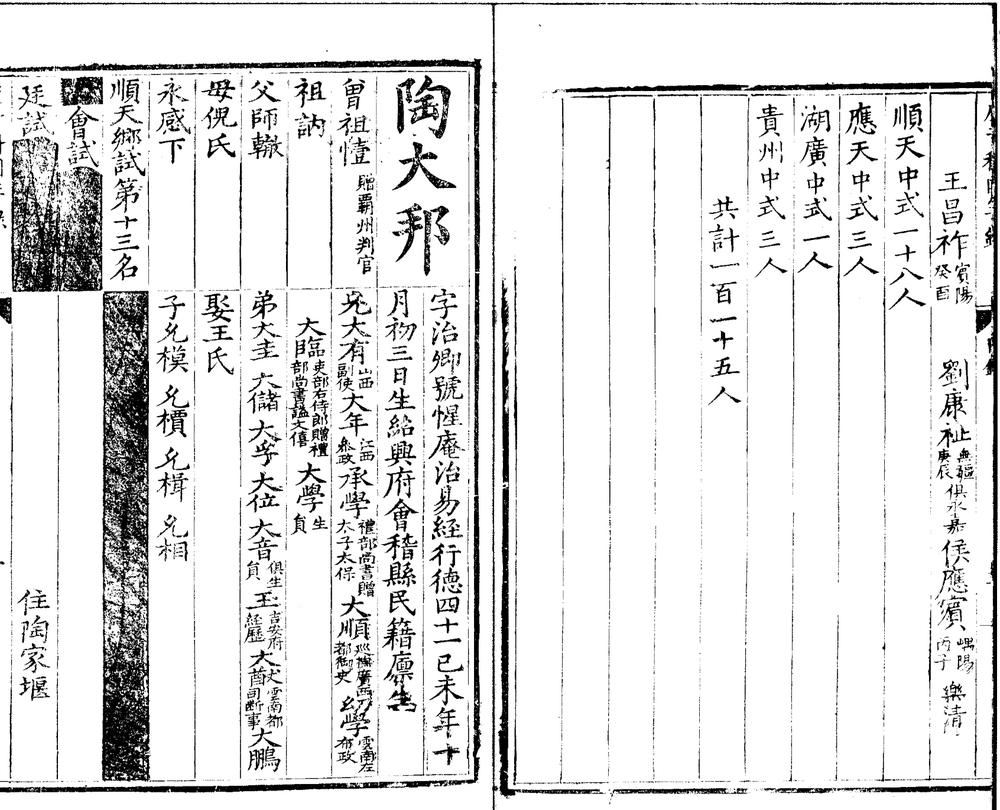 王昌祚 賓陽 癸酉 劉康祉 無疆 庚辰 俱永嘉 侯應賓 嵎陽 丙子 樂清
順天中式一十八人
應天中式三人
湖廣中式一人
貴州中式三人
共計一百一十五人
陶大邦
字治卿號惺庵治易經行德四十一己未年十
月初三日生紹興府會稽縣民籍廩生
曾祖愷 贈霸州判官
兄大有 山西副使 大年 江西叅政 承學 禮部尚書贈太子太保 大順 巡撫廣西都御史 幼學 雲南左布政
祖訥
大臨 吏部右侍郎贈禮部尚書謚文僖 大學 生員
父師轍
弟大圭 大儲 大孚 大位 大音 俱生員 大 吉安府經歷 大酋 雲南都司斷事 大鵬
母倪氏
娶王氏
永感下
子允模 允櫝 允楫 允相
順天鄉試第十三名
會試
廷試
住陶家堰